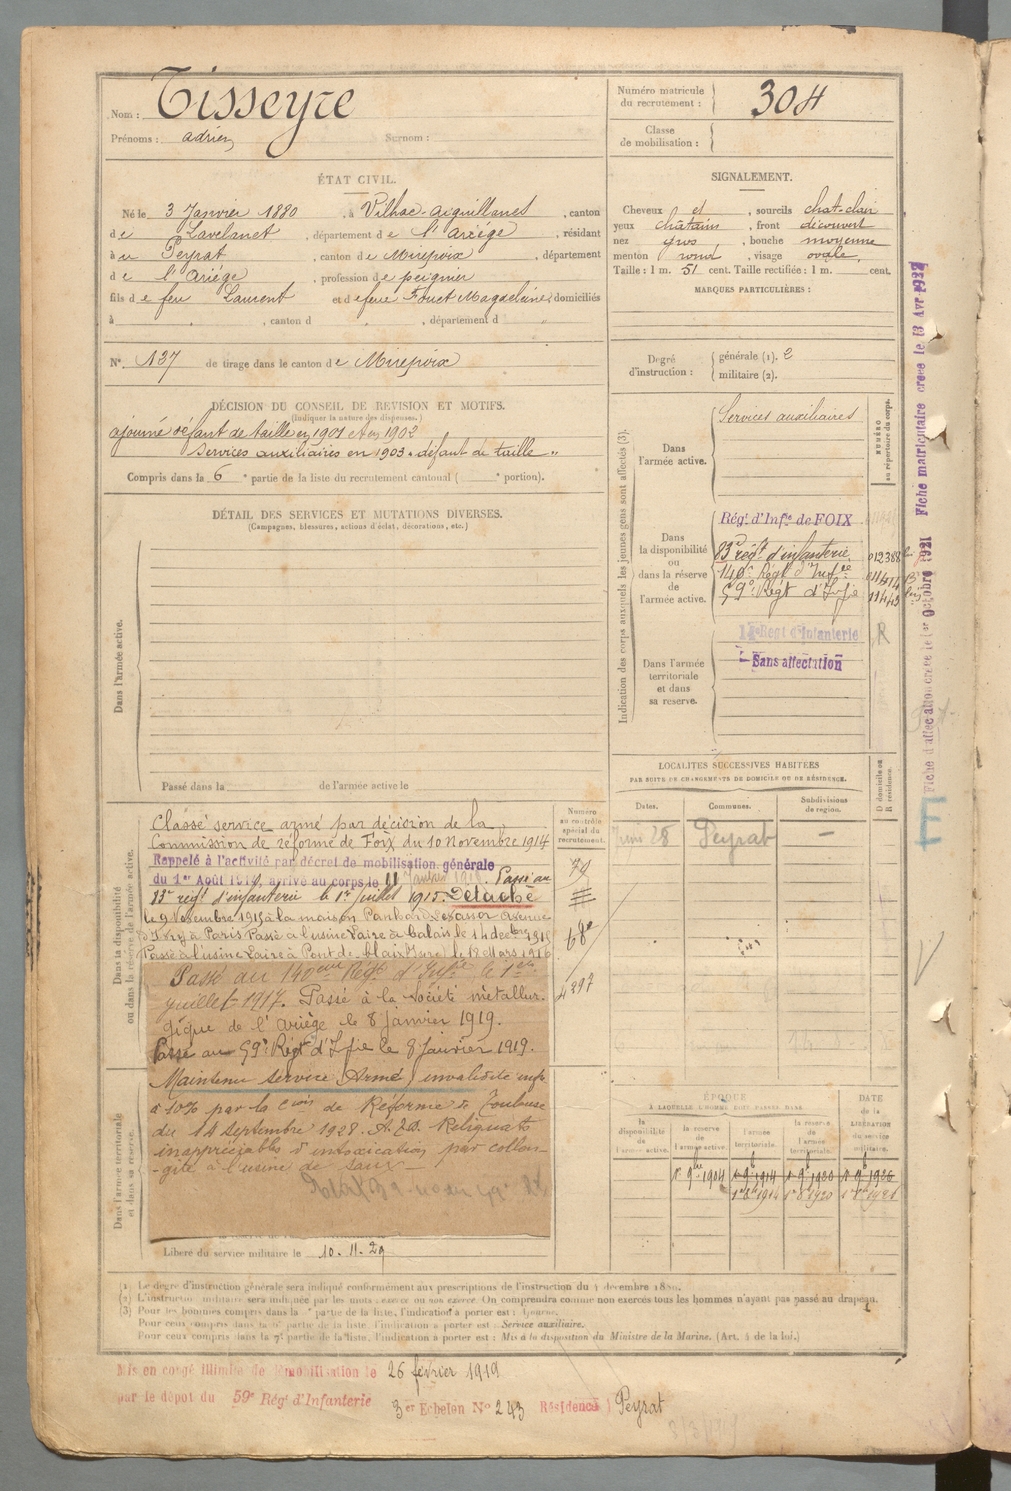 Nom : Tisseyre
Prénoms : adrien Surnom :
Numéro matricule du recrutement : 304
Classe de mobilisation :
ÉTAT CIVIL.
Né le 3 Janvier 1880, à Vilhac-aiguillanes, canton
de Lavelanet, département de l'Ariége, résidant
à u Peyrat, canton de Mirepoix, département
de l'Ariége, profession de peignier
fils de feu Laurent et de feue Fouet Magdelaine, domiciliés
à , canton d , département d
N° 137 de tirage dans le canton de Mirepoix
SIGNALEMENT.
Cheveux et , sourcils chat-clair
yeux châtains , front découvert
nez gros , bouche moyenne
menton rond , visage ovale,
Taille : 1 m. 51 cent. Taille rectifiée : 1 m. cent.
MARQUES PARTICULIÈRES :
Degré d'instruction : générale (1). 2
militaire (2).
DÉCISION DU CONSEIL DE REVISION ET MOTIFS.
(Indiquer la nature des dispenses.)
ajourné défaut de taille en 1901 et en 1902
Services auxiliaires en 1903 "défaut de taille"
Compris dans la 6e partie de la liste du recrutement cantonal ( e portion).
DÉTAIL DES SERVICES ET MUTATIONS DIVERSES.
(Campagnes, blessures, actions d'éclat, décorations, etc.)
Dans l'armée active.
Passé dans la de l'armée active le
Indication des corps auxquels les jeunes gens sont affectés (3).
NUMÉRO au répertoire du corps.
Dans l'armée active. Services auxiliaires
Dans la disponibilité ou dans la réserve de l'armée active.
Régt d'Infie de FOIX
83e régt d'infanterie. 012388
140e Régt d'Infre
59e Régt d'Infie
Dans l'armée territoriale et dans sa reserve.
Regt d'Infanterie R
Sans affectation
Fiche d'affectation créée le 1er Octobre 1921 Fiche matriculaire créée le 13 Avr 1927
E
LOCALITÉS SUCCESSIVES HABITÉES
PAR SUITE DE CHANGEMENTS DE DOMICILE OU DE RÉSIDENCE.
D domicile ou R résidence.
Dates. Communes. Subdivisions de région.
Juin 28 Peyrat —
Dans la disponibilité ou dans la réserve de l'armée active.
Numéro au contrôle spécial du recrutement.
Classé service armé par décision de la
Commission de réforme de Foix du 10 novembre 1914
Rappelé à l'activité par décret de mobilisation générale
du 1er Août 1914, arrivé au corps le 11 Janvier 1915. Passé au
83e régt d'infanterie le 1er Juillet 1915. Détaché
le 9 Novembre 1915 à la maison Panhard Levassor Avenue
d'Ivry à Paris Passé à l'usine Laire à Calais le 14 decbre 1915
Passé à l'usine Laire à Pont de Claix Isère, le 19 Mars 1916
79
68e
4297
Passé au 140eme Régt d'Infie le 1er
juillet 1917. Passé à la Société métallur-
gique de l'Ariége le 8 Janvier 1919.
Passé au 59e Régt d'Infie le 8 Janvier 1919.
Maintenu service Armé, invalidité infre
à 10% par la Cion de Réforme de Toulouse
du 14 Septembre 1928. Reliquats
inappréciables d'intoxication par collon-
-gite à l'usine de
Dans l'armée territoriale et dans sa reserve.
Libéré du service militaire le 10.11.29
ÉPOQUE
À LAQUELLE L'HOMME DOIT PASSER DANS
DATE de la LIBÉRATION du service militaire.
la disponibilité de l'armée active. la réserve de l'armée active. l'armée territoriale. la réserve de l'armée territoriale.
1er 9bre 1904 1er 9b 1914 1er 9b 1920 1er 9b 1926
1er 8b 1914 1er 8b 1920 1er 8b 1921
(1) Le degré d'instruction générale sera indiqué conformément aux prescriptions de l'instruction du 4 décembre 1889.
(2) L'instruction militaire sera indiquée par les mots : exercé ou non exercé. On comprendra comme non exercés tous les hommes n'ayant pas passé au drapeau.
(3) Pour les hommes compris dans la partie de la liste, l'indication à porter est : Ajourné.
Pour ceux compris dans la 6e partie de la liste, l'indication à porter est : Service auxiliaire.
Pour ceux compris dans la 7e partie de la liste, l'indication à porter est : Mis à la disposition du Ministre de la Marine. (Art. 4 de la loi.)
Mis en congé illimité de démobilisation le 26 février 1919
par le dépôt du 59e Régt d'Infanterie 3er Echelon N° 243 Résidence : Peyrat